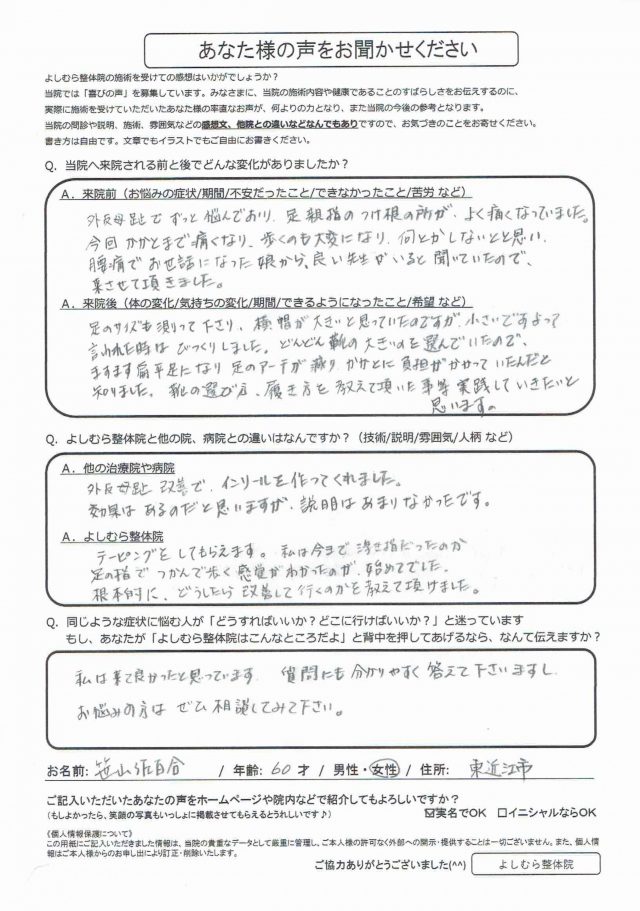 あなた様の声をお聞かせください
よしむら整体院の施術を受けての感想はいかがでしょうか？
当院では「喜びの声」を募集しています。みなさまに、当院の施術内容や健康であることのすばらしさをお伝えするのに、
実際に施術を受けていただいたあなた様の率直なお声が、何よりの力となり、また当院の今後の参考となります。
当院の問診や説明、施術、雰囲気などの感想文、他院との違いなどなんでもありですので、お気づきのことをお寄せください。
書き方は自由です。文章でもイラストでもご自由にお書きください。
Q. 当院へ来院される前と後でどんな変化がありましたか？
A. 来院前（お悩みの症状/期間/不安だったこと/できなかったこと/苦労 など）
外反母趾でずっと悩んでおり、足親指のつけ根の所が、よく痛くなっていました。
今回かかとまで痛くなり、歩くのも大変になり、何とかしないとと思い、
腰痛でお世話になった娘から、良い先生がいると聞いていたので、
来させて頂きました。
A. 来院後（体の変化/気持ちの変化/期間/できるようになったこと/希望 など）
足のサイズも測って下さり、横幅が大きいと思っていたのですが、小さいですよって
言われた時はびっくりしました。どんどん靴の大きいのを選んでいたので、
ますます扁平足になり足のアーチが減り、かかとに負担がかかっていたんだと
知りました。靴の選び方、履き方を教えて頂いた事等実践していきたいと
思います。
Q. よしむら整体院と他の院、病院との違いはなんですか？（技術/説明/雰囲気/人柄 など）
A. 他の治療院や病院
外反母趾改善で、インソールを作ってくれました。
効果はあるのだと思いますが、説明はあまりなかったです。
A. よしむら整体院
テーピングをしてもらえます。私は今まで浮き指だったのが
足の指でつかんで歩く感覚がわかったのが、始めてでした。
根本的に、どうしたら改善して行くのかを教えて頂けました。
Q. 同じような症状に悩む人が「どうすればいいか？どこに行けばいいか？」と迷っています
もし、あなたが「よしむら整体院はこんなところだよ」と背中を押してあげるなら、なんて伝えますか？
私は来て良かったと思っています。質問にも分かりやすく答えて下さいますし、
お悩みの方はぜひ相談してみて下さい。
お名前: 笹山佐百合 / 年齢: 60 才 / 男性・女性 / 住所: 東近江市
ご記入いただいたあなたの声をホームページや院内などで紹介してもよろしいですか？
（もしよかったら、笑顔の写真もいっしょに掲載させてもらえるとうれしいです♪） ☑実名でOK □イニシャルならOK
《個人情報保護について》
この用紙にご記入いただきました情報は、当院の貴重なデータとして厳重に管理し、ご本人様の許可なく外部への開示・提供することは一切ございません。また、個人情
報はご本人様からのお申し出により訂正・削除いたします。
ご協力ありがとうございました(^^) よしむら整体院